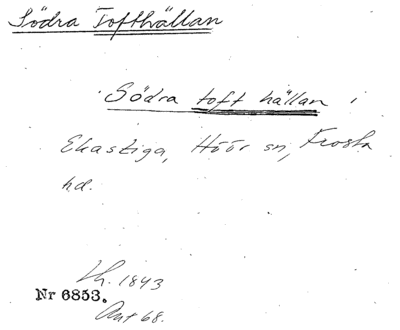 Södra Tofthällan
Södra toft hällan i
Ekastiga, Höör sn, Frosta
hd.
Lh. 1843
Nr 6853.
Ant 68.